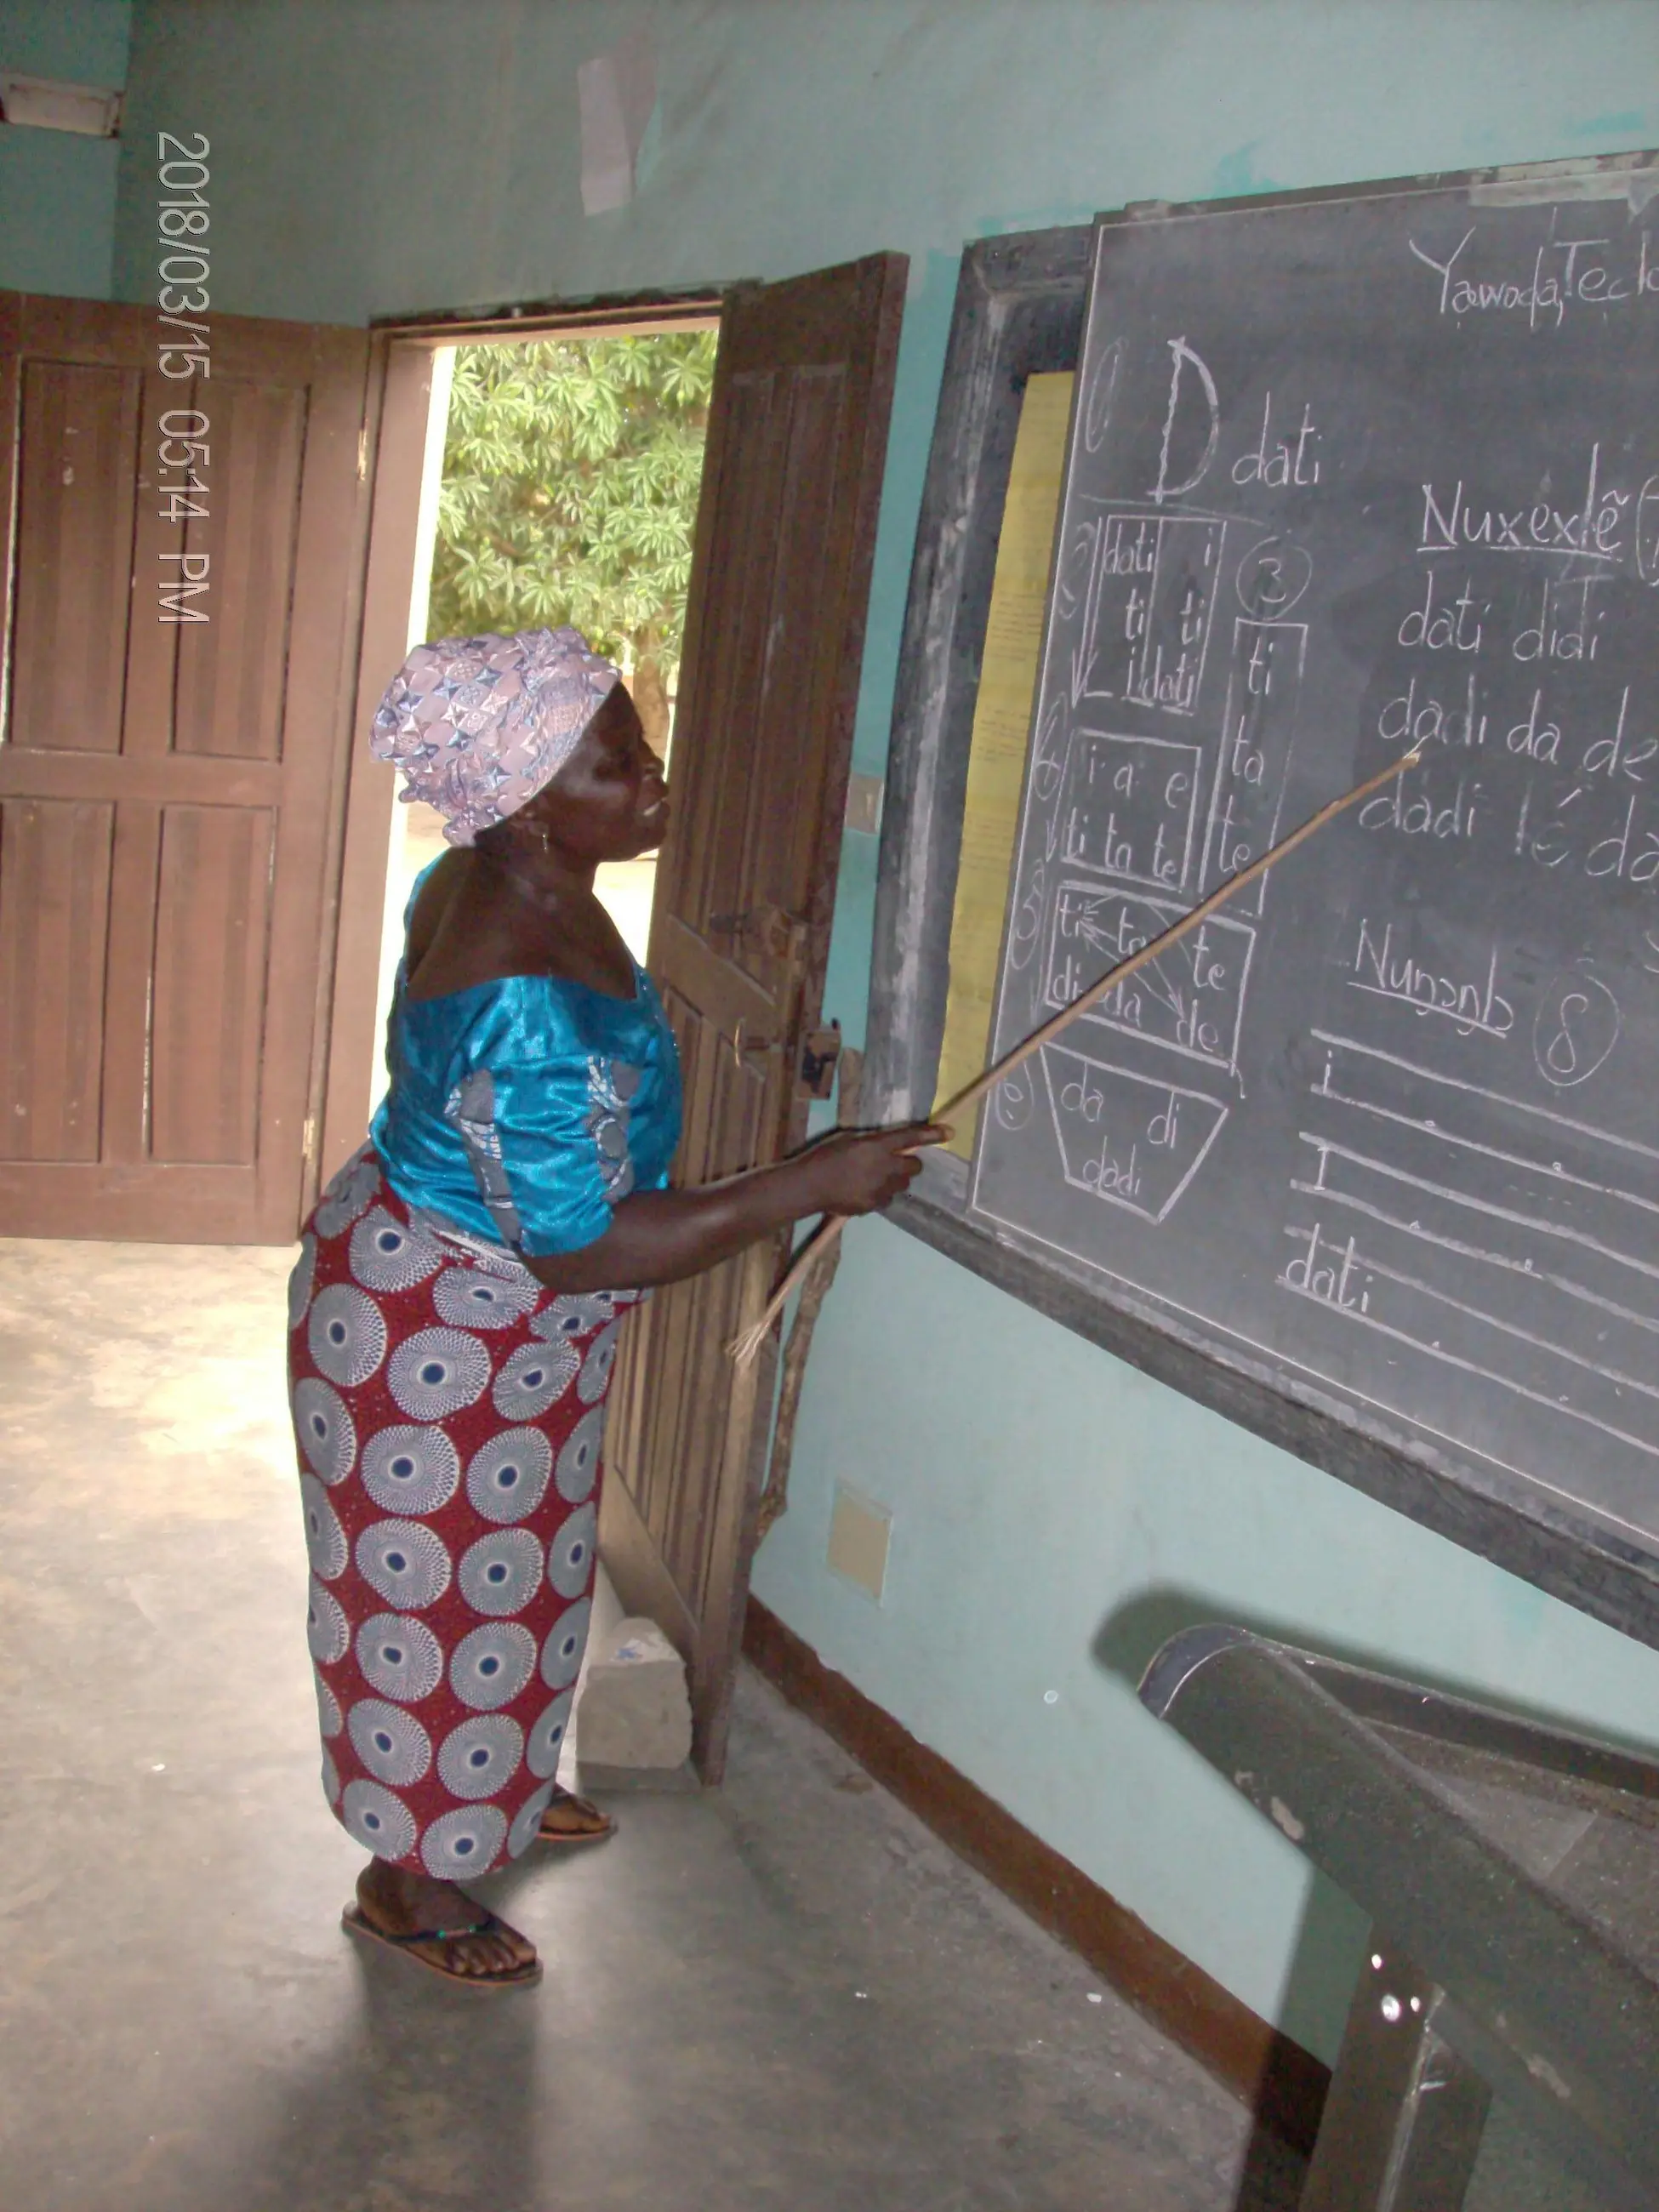 2018/03/15 05:14 PM
D dati
dati i
ti ti
i dati
3
ti
ta
te
i a e
ti ta te
ti ta te
di da de
da di
dadi
Nuxexlẽ
dati didi
dadi da de
dadi lé da
Nuŋɔŋlɔ 8
i
I
dati